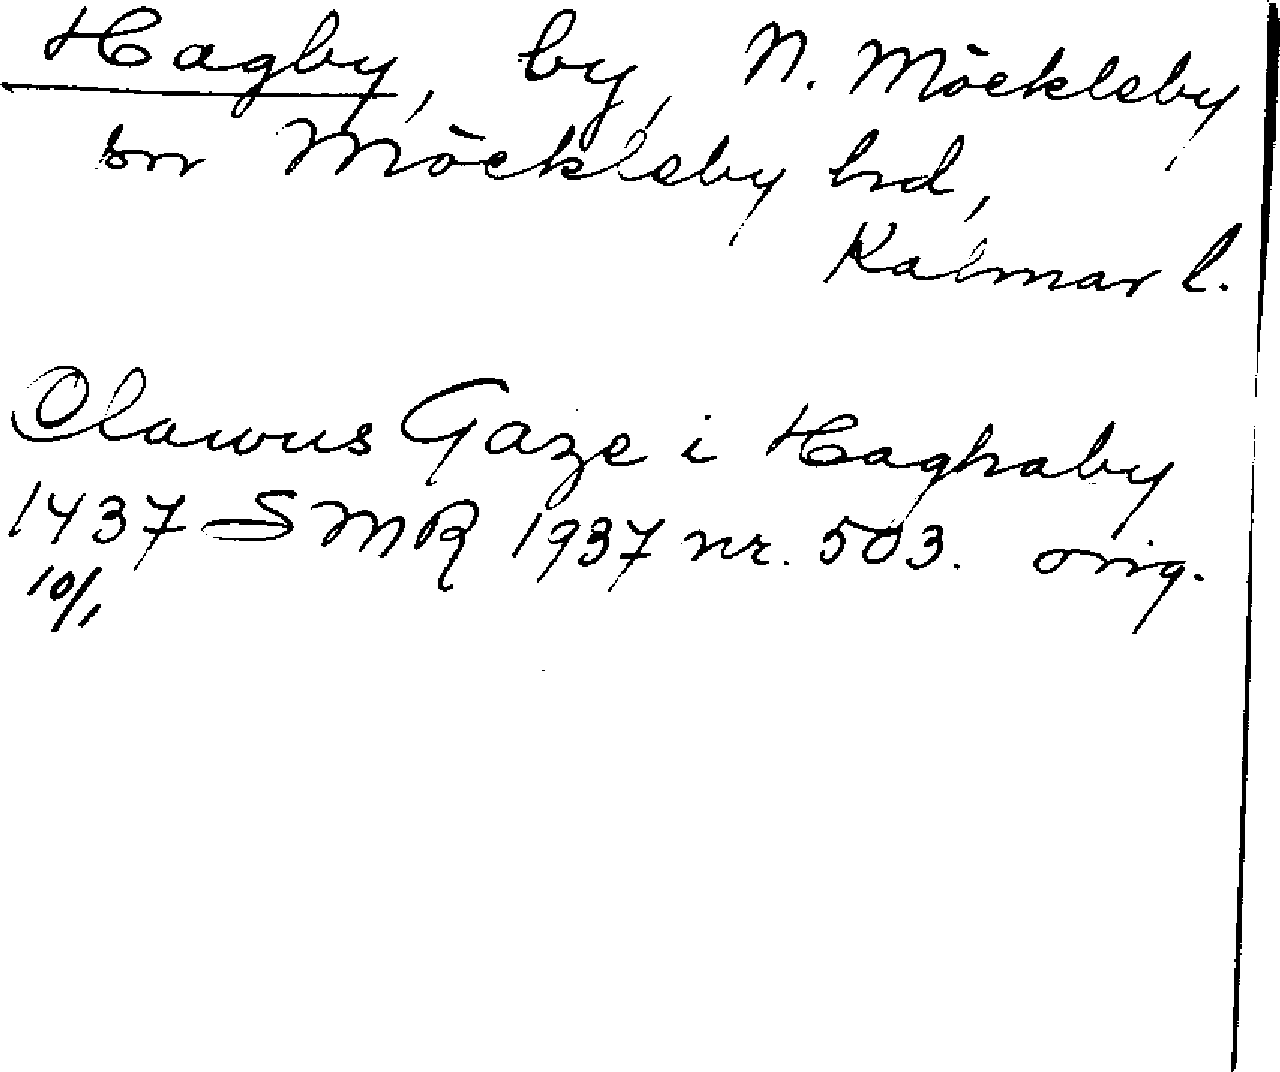 Hagby, by, N. Möckleby
sn Möckleby hd,
Kalmar l.
Olawus Gaze i Haghaby
1437 SMR 1937 nr. 503. orig.
10/1